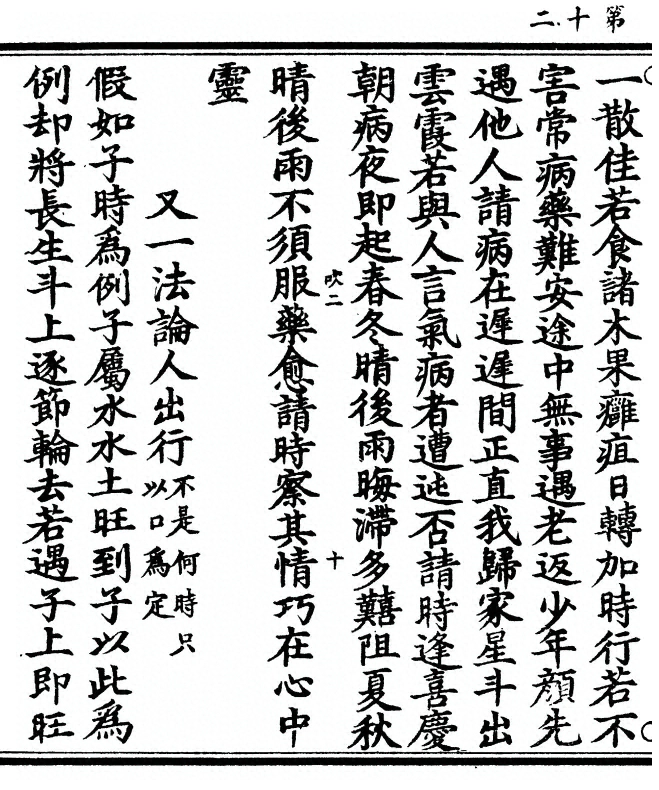 第十二
一散佳若食諸木果癰疽日轉加時行若不
害常病藥難安途中無事遇老返少年顔先
遇他人請病在遲遲間正直我歸家星斗出
雲霞若與人言氣病者遭迍否請時逢喜慶
朝病夜即起春冬晴後雨晦滯多囏阻夏秋
吹二
十
晴後雨不須服藥愈請時察其情巧在心中
靈
又一法論人出行不是何時只以口為定
假如子時為例子屬水水土旺到子以此為
例却將長生斗上逐節輪去若遇子上即旺